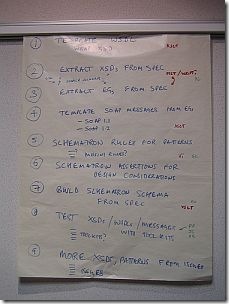 1 TEMPLATE WSDL
WRAP XSD? XSLT
2 EXTRACT XSDs FROM SPEC
XSLT /
3 EXTRACT EGs FROM SPEC
4 TEMPLATE SOAP MESSAGES FROM EGs
- SOAP 1.1
- SOAP 1.2 XSLT
5 SCHEMATRON RULES FOR PATTERNS
6 SCHEMATRON ASSERTIONS FOR
DESIGN CONSIDERATIONS
7 BUILD SCHEMATRON SCHEMA
FROM SPEC
XSLT
8 TEST XSDs/WSDLs/MESSAGES
WITH TOOLKITS
TOOLKITS?
9 MORE XSDs/PATTERNS FROM ISSUES
ISSUES